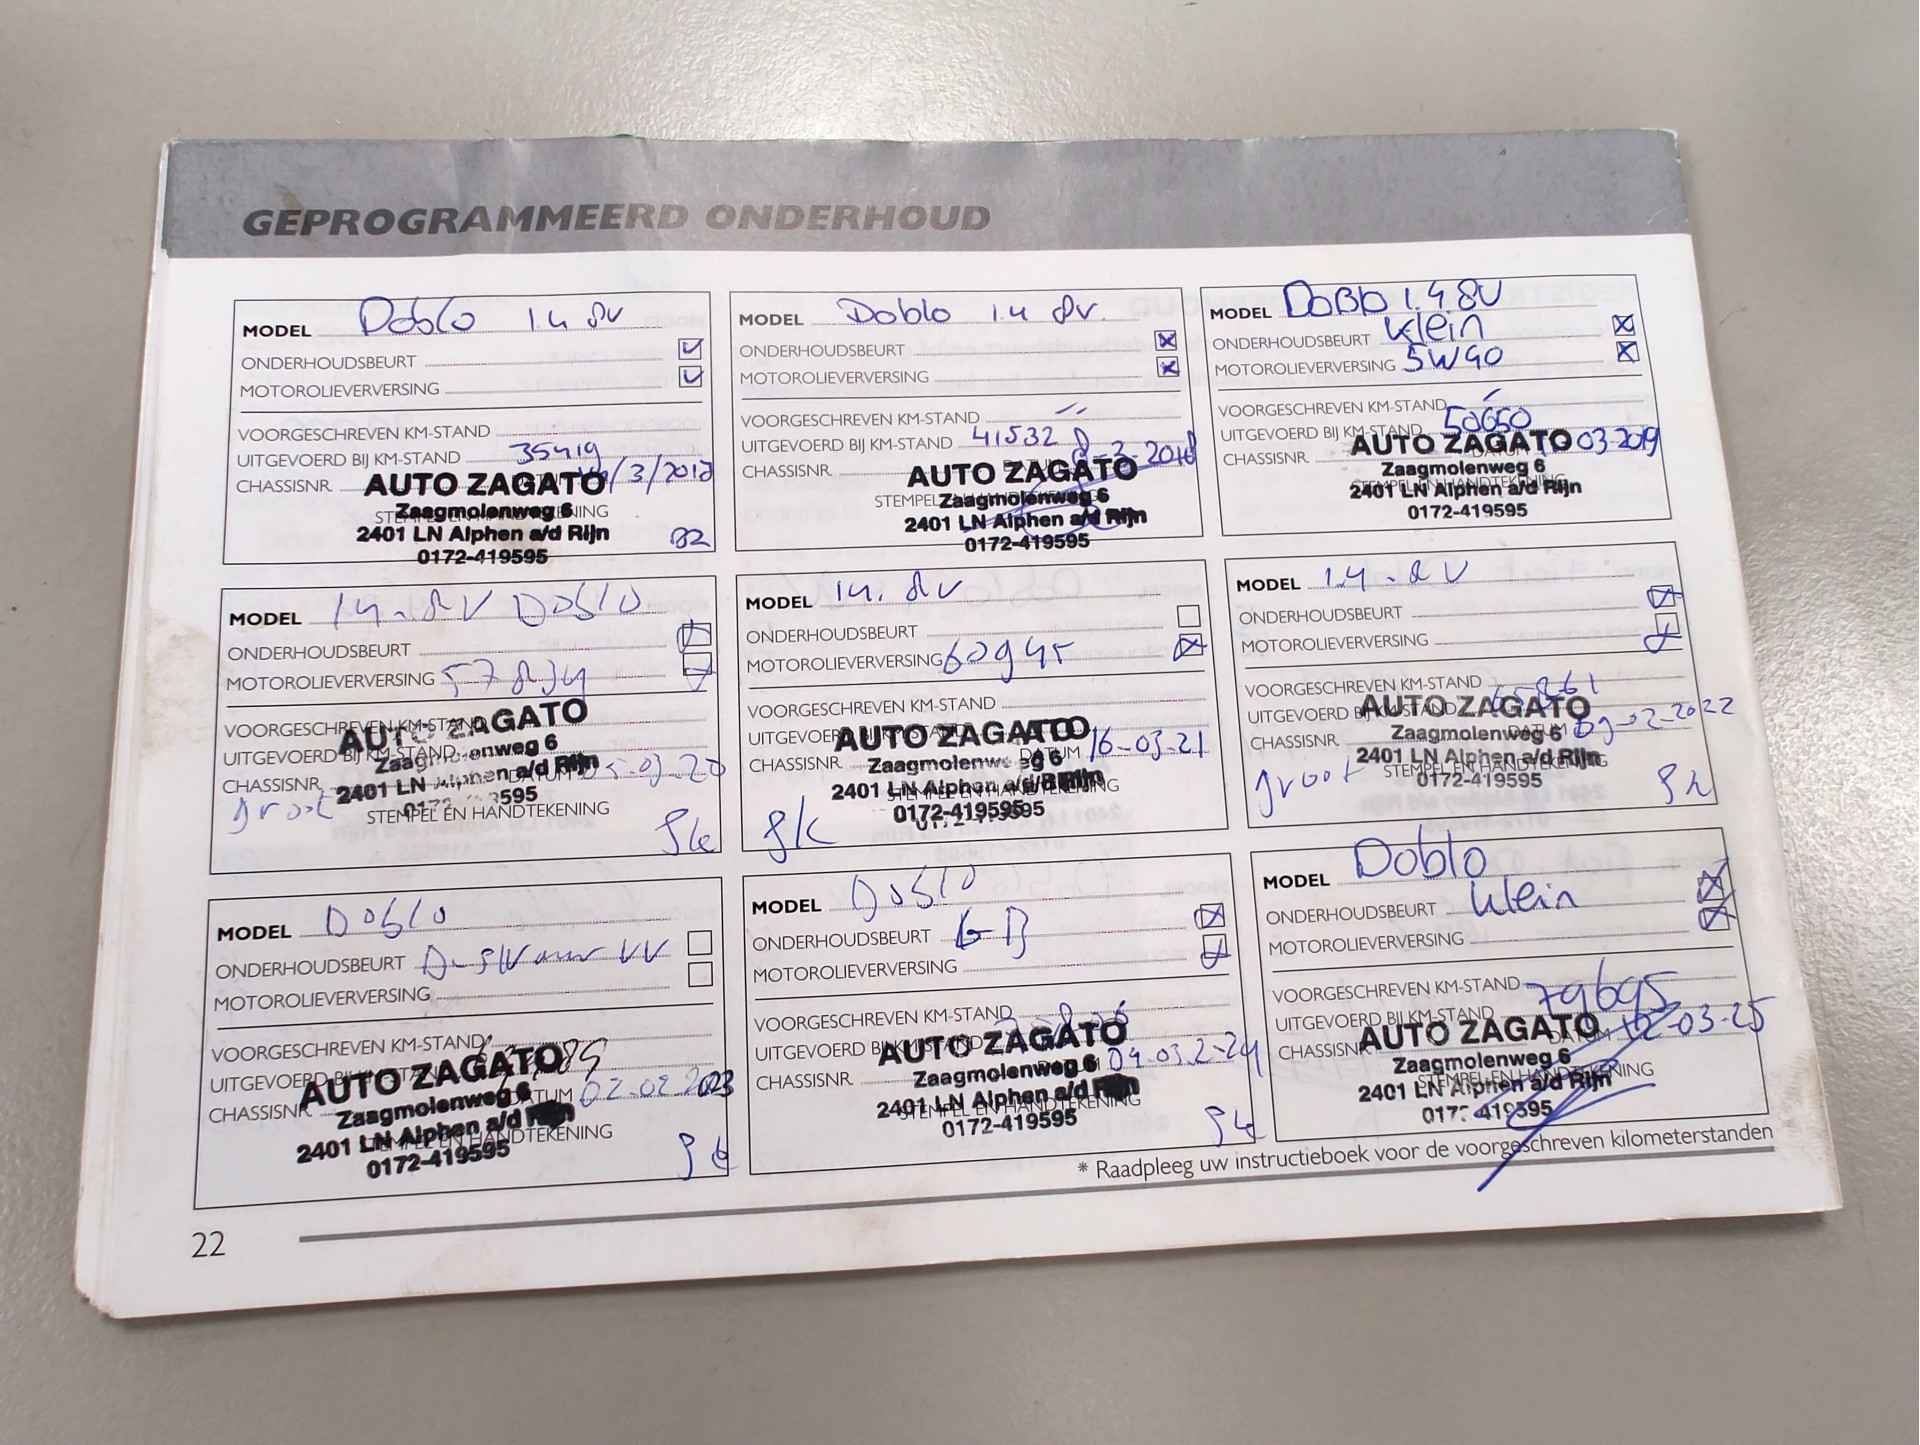 GEPROGRAMMEERD ONDERHOUD
MODEL Doblo 1.4 8v
ONDERHOUDSBEURT
MOTOROLIEVERVERSING
VOORGESCHREVEN KM-STAND
UITGEVOERD BIJ KM-STAND 35419
CHASSISNR. /3/2017
AUTO ZAGATO
Zaagmolenweg 6
STEMPEL EN HANDTEKENING
2401 LN Alphen a/d Rijn
0172-419595
MODEL Doblo 1.4 8v.
ONDERHOUDSBEURT
MOTOROLIEVERVERSING
VOORGESCHREVEN KM-STAND
UITGEVOERD BIJ KM-STAND 41532
CHASSISNR. DATUM 8-3-2018
AUTO ZAGATO
STEMPEL EN HANDTEKENING
Zaagmolenweg 6
2401 LN Alphen a/d Rijn
0172-419595
MODEL DoBlo 1.4 8V
ONDERHOUDSBEURT Klein
MOTOROLIEVERVERSING 5W40
VOORGESCHREVEN KM-STAND
UITGEVOERD BIJ KM-STAND 50650
CHASSISNR. DATUM 03-2019
AUTO ZAGATO
Zaagmolenweg 6
STEMPEL EN HANDTEKENING
2401 LN Alphen a/d Rijn
0172-419595
MODEL 14.8V Doblo
ONDERHOUDSBEURT
MOTOROLIEVERVERSING 57834
VOORGESCHREVEN KM-STAND
UITGEVOERD BIJ KM-STAND
CHASSISNR. DATUM 05-03-20
AUTO ZAGATO
Zaagmolenweg 6
2401 LN Alphen a/d Rijn
0172-419595
groot STEMPEL EN HANDTEKENING
MODEL 14.8V
ONDERHOUDSBEURT
MOTOROLIEVERVERSING 60945
VOORGESCHREVEN KM-STAND
UITGEVOERD BIJ KM-STAND
CHASSISNR. DATUM 16-03-21
AUTO ZAGATO
Zaagmolenweg 6
2401 LN Alphen a/d Rijn
STEMPEL EN HANDTEKENING
0172-419595
MODEL 1.4.8V
ONDERHOUDSBEURT
MOTOROLIEVERVERSING
VOORGESCHREVEN KM-STAND
UITGEVOERD BIJ KM-STAND 65861
CHASSISNR. DATUM 09-02-2022
AUTO ZAGATO
Zaagmolenweg 6
2401 LN Alphen a/d Rijn
groot STEMPEL EN HANDTEKENING
0172-419595
MODEL Doblo
ONDERHOUDSBEURT
MOTOROLIEVERVERSING
VOORGESCHREVEN KM-STAND
UITGEVOERD BIJ KM-STAND
CHASSISNR. DATUM 02-02-2023
AUTO ZAGATO
Zaagmolenweg 6
2401 LN Alphen a/d Rijn
STEMPEL EN HANDTEKENING
0172-419595
MODEL Doblo
ONDERHOUDSBEURT GB
MOTOROLIEVERVERSING
VOORGESCHREVEN KM-STAND
UITGEVOERD BIJ KM-STAND
CHASSISNR. 04-03-2024
AUTO ZAGATO
Zaagmolenweg 6
2401 LN Alphen a/d Rijn
STEMPEL EN HANDTEKENING
0172-419595
MODEL Doblo
ONDERHOUDSBEURT Klein
MOTOROLIEVERVERSING
VOORGESCHREVEN KM-STAND
UITGEVOERD BIJ KM-STAND 79695
CHASSISNR. DATUM 12-03-25
AUTO ZAGATO
Zaagmolenweg 6
STEMPEL EN HANDTEKENING
2401 LN Alphen a/d Rijn
0172-419595
* Raadpleeg uw instructieboek voor de voorgeschreven kilometerstanden
22